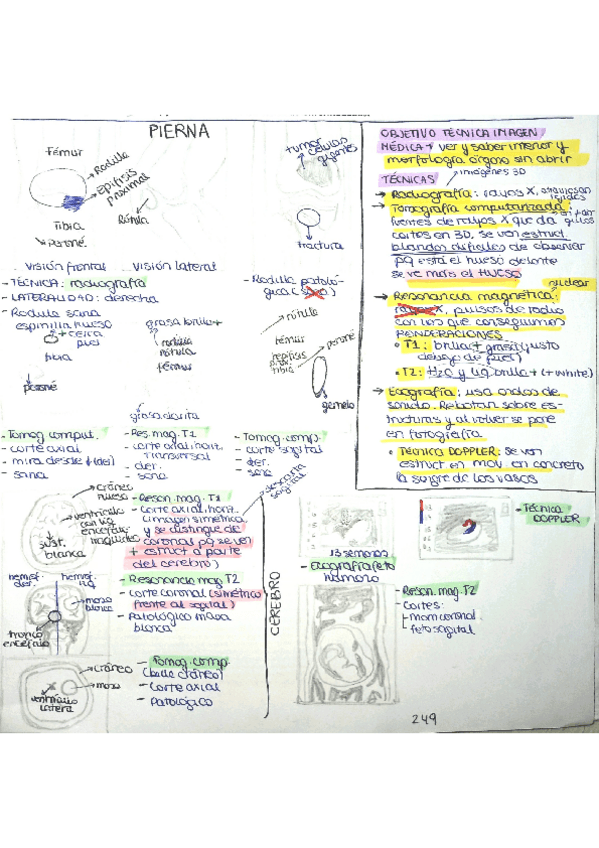 PIERNA
Fémur
Rodilla
Epífisis
proximal
Tibia
Peroné
Rótula
tumor
células
gigantes
fractura
visión frontal
visión lateral
- TÉCNICA: radiografía
- LATERALIDAD: derecha
- Rodilla sana
- Rodilla patoló-
gica (sana)
espinilla hueso
+ cerca
piel
tibia
peroné
grasa brilla +
rodilla
rótula
fémur
grasa clarita
rótula
fémur
peroné
epífisis
prox.
tibia
gemelo
- Tomog. comput.
- corte axial
- mira desde ↓ (der)
- sana
- Res. mag. T1
- corte axial, horiz.
transversal
- der.
- sana
- Tomog. comp.
- corte sagital
- der.
- sana
OBJETIVO TÉCNICA IMAGEN
MÉDICA → ver y saber interior y
morfología órganos sin abrir
TÉCNICAS
imágenes 3D
→ Radiografía: rayos X, atraviesan
tejidos
→ Tomografía computarizada:
fuentes de rayos X que da
cortes en 3D, se ven estruct
blandas difíciles de observar
pq está el hueso delante
se ve mejor el HUESO
nuclear
→ Resonancia magnética:
rayos X, pulsos de radio
con los que conseguimos
PONDERACIONES
• T1: brilla + grasa (justo
debajo de piel)
• T2: H2O y líq. brilla + (+ white)
→ Ecografía: usa ondas de
sonido. Rebotan sobre es-
tructuras y al volver se pone
en fotografía
• Técnica DOPPLER: se ven
estruct en mov. en concreto
la sangre de los vasos
CEREBRO
cráneo
hueso
ventrículo
con líq.
encefalo-
rraquídeo
sust.
blanca
- Reson. mag. T1
- Corte axial, horiz.
(imagen simétrica
y se distingue de
coronal pq se ven
+ estruct a parte
del cerebro)
descarta
sagital
hemisf.
der.
hemisf.
izq
masa
blanca
tronco
encéfalo
- Resonancia mag. T2
- corte coronal (simétrico
frente al sagital)
- Patológico masa
blanca
cráneo
masa
ventrículo
lateral
- Tomog. comp.
(brilla cráneo)
- Corte axial
- Patológico
13 semanas
- Ecografía feto
humano
- Técnica
DOPPLER
- Reson. mag. T2
- Cortes:
- mam coronal
- feto sagital
249